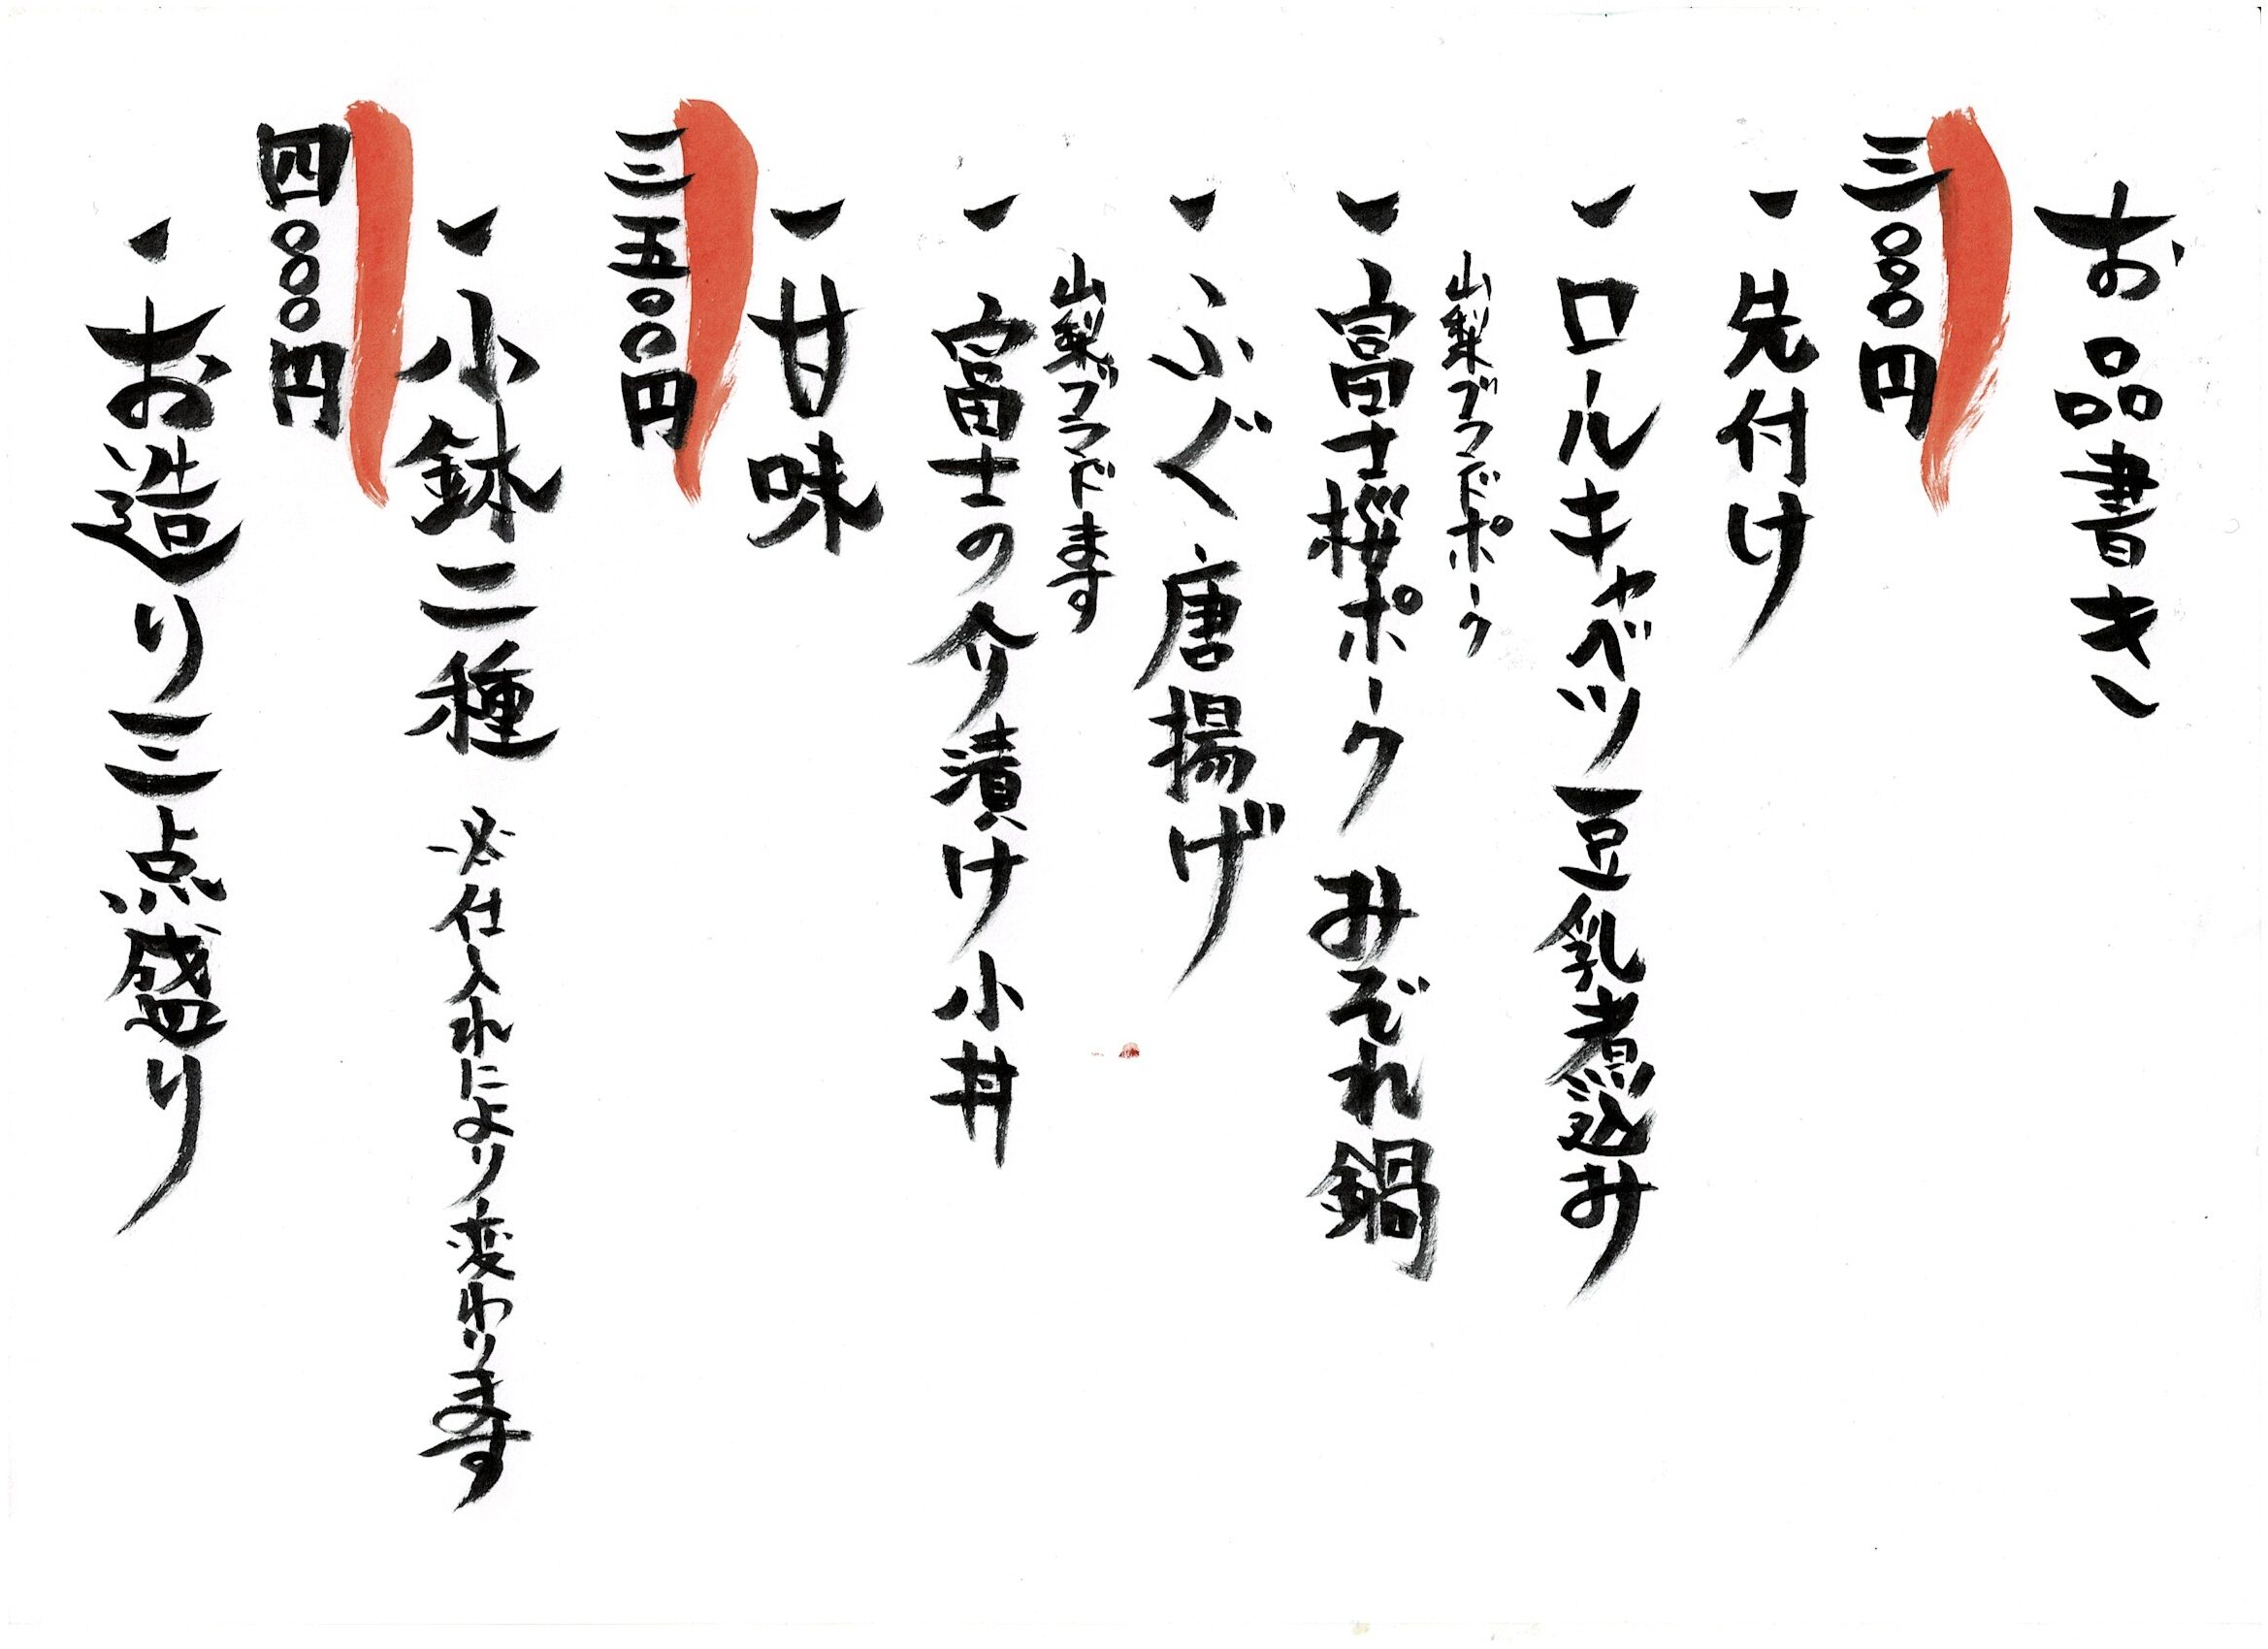 お品書き
三〇〇〇円
一 先付け
一 ロールキャベツ豆乳煮込み
山梨ブランドポーク
一 富士桜ポークみぞれ鍋
一 ふぐ唐揚げ
山梨ブランドます
一 富士の介漬け小丼
一 甘味
三五〇〇円
一 小鉢二種 ※仕入れにより変わります
四〇〇〇円
・お造り三点盛り